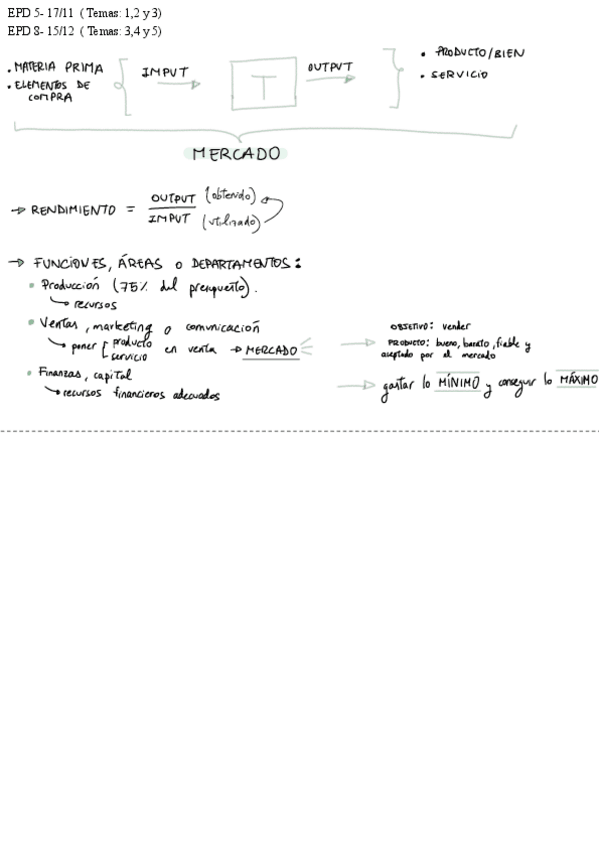 EPD 5- 17/11 ( Temas: 1,2 y 3)
EPD 8- 15/12 ( Temas: 3,4 y 5)
• MATERIA PRIMA
• ELEMENTOS DE COMPRA
IMPUT
T
OUTPUT
• PRODUCTO/BIEN
• SERVICIO
MERCADO
→ RENDIMIENTO = OUTPUT (obtenido)
IMPUT (utilizado)
→ FUNCIONES, ÁREAS o DEPARTAMENTOS:
• Producción (75% del presupuesto).
↳ recursos
• Ventas, marketing o comunicación
↳ poner [ producto
servicio
en venta → MERCADO
OBJETIVO: vender
PRODUCTO: bueno, barato, fiable y
aceptado por el mercado
• Finanzas, capital
↳ recursos financieros adecuados
→ gastar lo MÍNIMO y conseguir lo MÁXIMO